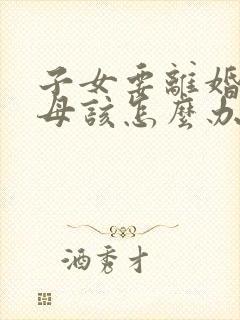 子女要離婚
母該怎麼办
酒秀才